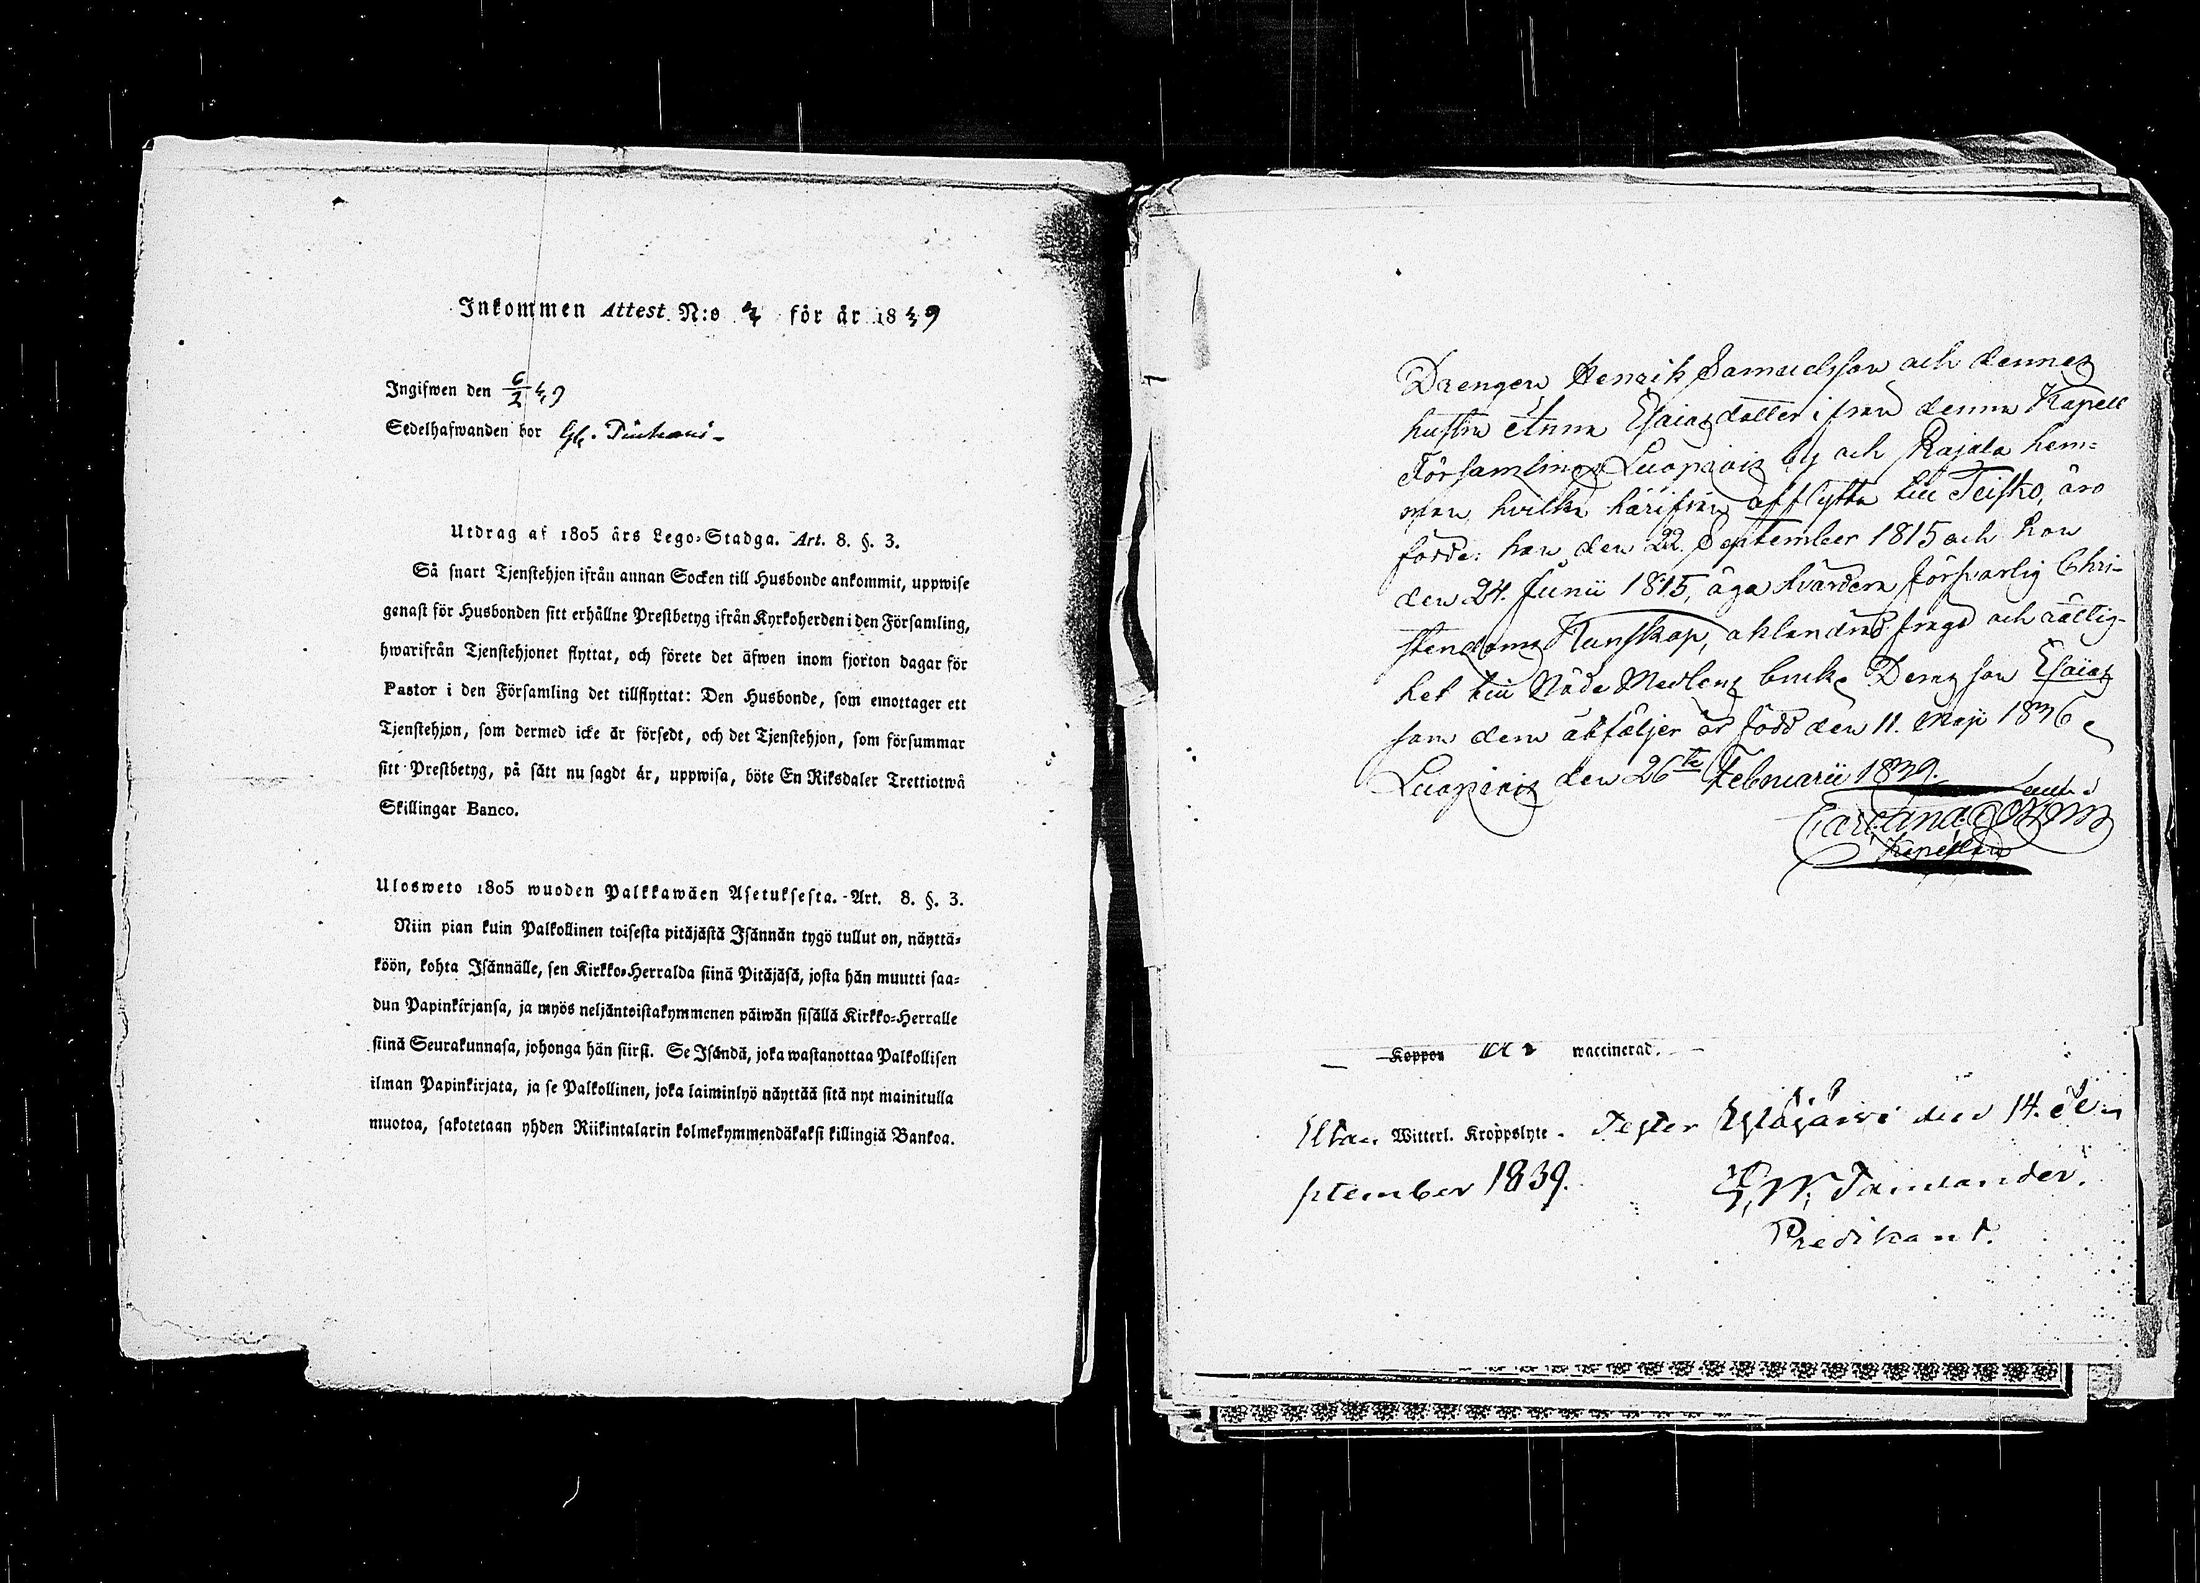 Inkommen Attest N:o för år 1839
Ingifwen den 6/2 39
Sedelhafwanden bor
Utdrag af 1805 års Lego-Stadga. Art. 8. §. 3.
Så snart Tjenstehjon ifrån annan Socken till Husbonde ankommit, uppwise
genast för Husbonden sitt erhållne Prestbetyg ifrån Kyrkoherden i den Församling,
hwarifrån Tjenstehjonet flyttat, och förete det äfwen inom fjorton dagar för
Pastor i den Församling det tillflyttat: Den Husbonde, som emottager ett
Tjenstehjon, som dermed icke är försedt, och det Tjenstehjon, som försummar
sitt Prestbetyg, på sätt nu sagdt är, uppwisa, böte En Riksdaler Trettiotwå
Skillingar Banco.
Ulosweto 1805 wuoden Palkkawäen Asetuksesta. Art. 8. §. 3.
Niin pian kuin Palkollinen toisesta pitäjästä Isännän tygö tullut on, näyttä-
köön, kohta Isännälle, sen Kirkko-Herralda siinä Pitäjäsä, josta hän muutti saa-
dun Papinkirjansa, ja myös neljäntoistakymmenen päiwän sisällä Kirkko-Herralle
siinä Seurakunnasa, johonga hän siirsi. Se Isändä, joka wastanottaa Palkollisen
ilman Papinkirjata, ja se Palkollinen, joka laiminlyö näyttää sitä nyt mainitulla
muotoa, sakotetaan yhden Riikintalarin kolmekymmendäkaksi killingiä Bankoa.
Drengen Henrik Samuelsson och dennes
hustru Anna Esaiasdotter ifrån denna Kapell
Församling Luopiois by och Rajala hem-
man hvilka härifrån afflytta till Teisko, äro
födde: han den 22. September 1815 och hon
den 24. Junii 1815, äga hvardera försvarlig Chri-
stendoms Kunskap, oklandrad frägd och rättig-
het till Nåde Medlens bruk. Deras son Esaias
som dem åtföljer är född den 11. Maji 1836
Luopiois den 26te Februarii 1839.
Kapellan
Koppor waccinerad.
Utan Witterl. Kroppslyte. Ylöjärvi den 14. Se-
ptember 1839.
Predikant.